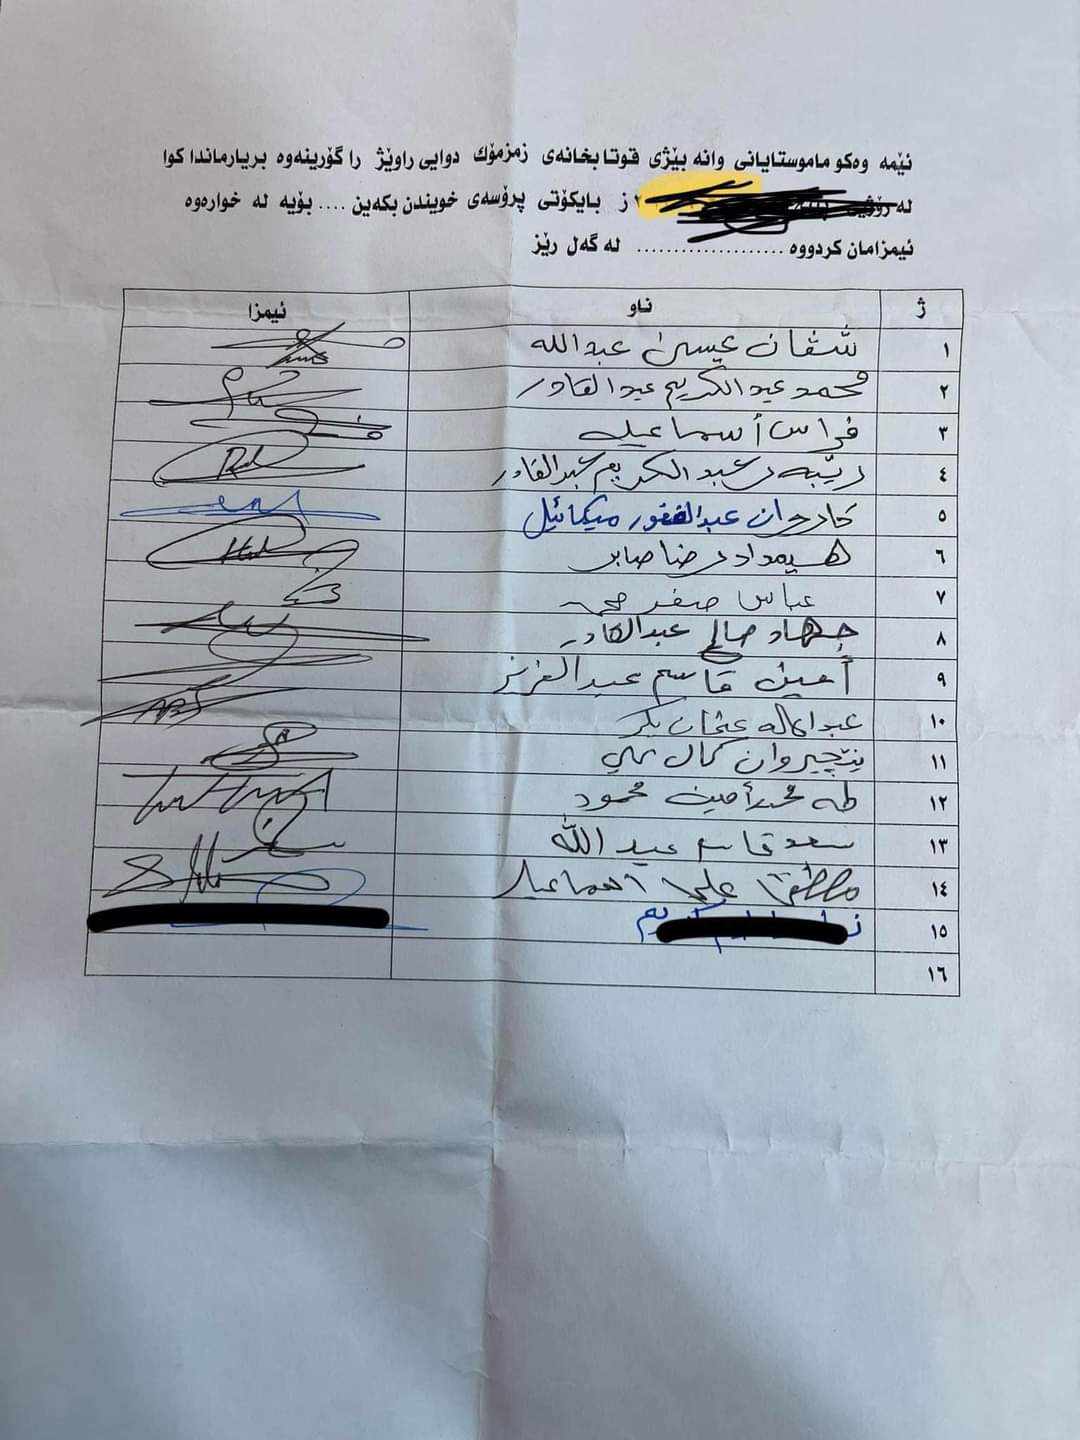 ئێمه وەکو ماموستایانی وانه بێژی قوتابخانەی زمزمۆك دوایی راوێژ را گۆرینەوە بریارماندا کوا
لە رۆژی ز بایکۆتی پرۆسەی خویندن بکەین .... بۆیە لە خوارەوە
ئیمزامان کردووە .................... لە گەل رێز
ژ ناو ئیمزا
١ شڤان عیسی عبدالله
٢ محمد عبدالکریم عبدالقادر
٣ فراس أسماعیل
٤ رێبەر عبدالکریم عبدالقادر
٥ کاروان عبدالغفور میکائیل
٦ هێمداد رضا صابر
٧ عباس صفر
٨ جهاد صالح عبدالقادر
٩ أمین قاسم عبدالعزیز
١٠ عبدالله عثمان بکر
١١ نێچیروان کمال علي
١٢ طه محمدأمین محمود
١٣ سعد قاسم عبدالله
١٤ مصطفی علی اسماعیل
١٥
١٦